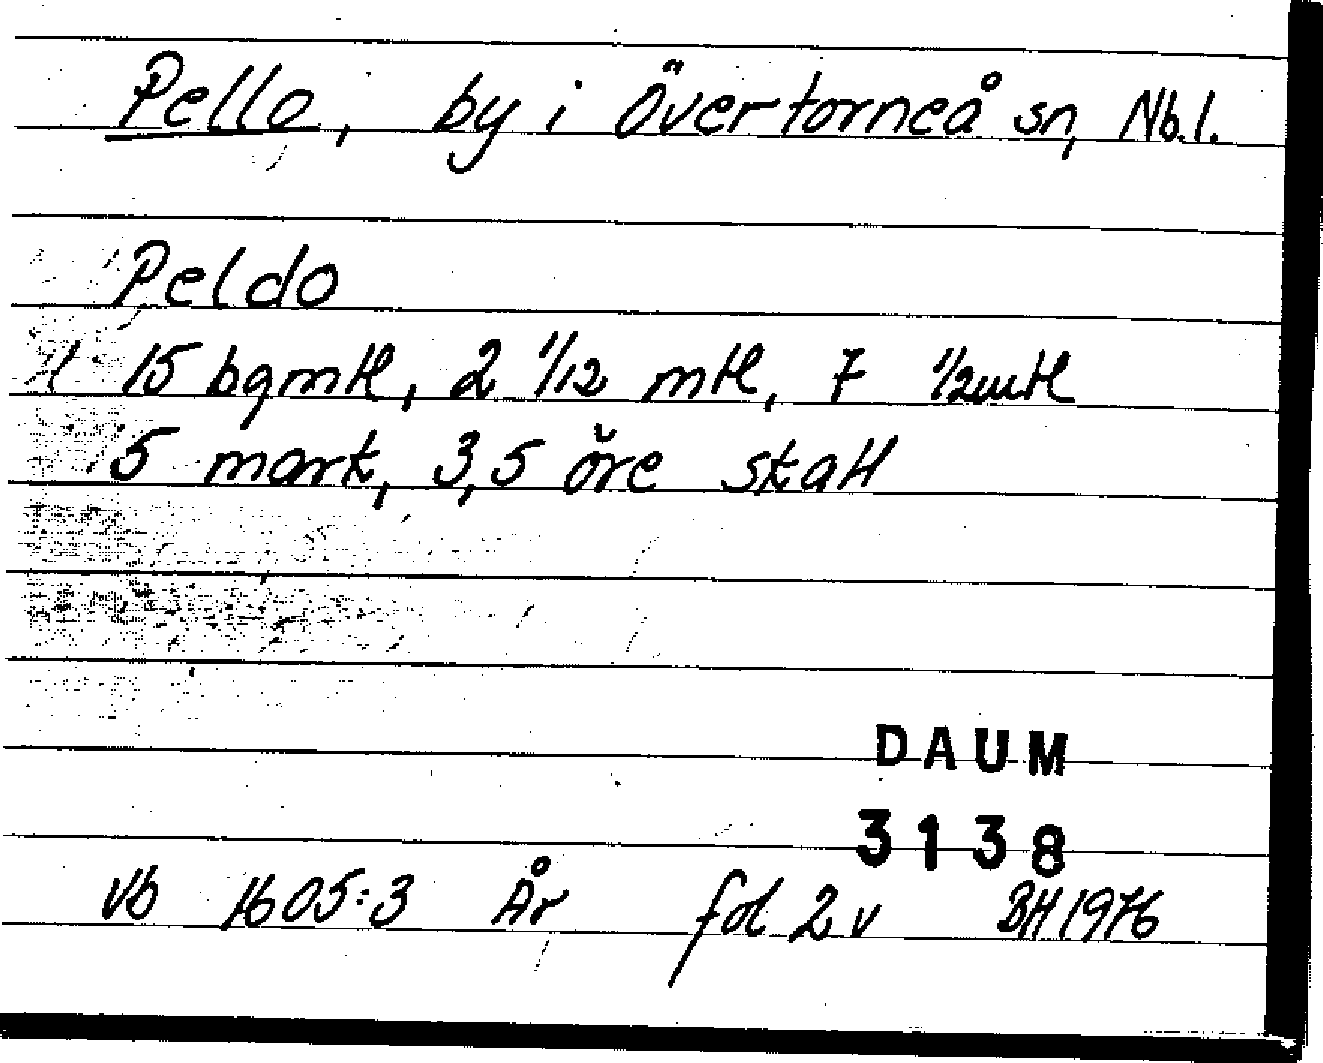 Pello, by i Övertorneå sn, Nb.l.
Peldo
15 bgmtl, 2 1/12 mtl, 7 1/2mtl
5 mark, 3,5 öre skatt
DAUM
3138
Vb 1605:3 År fol 2 v BH 1976